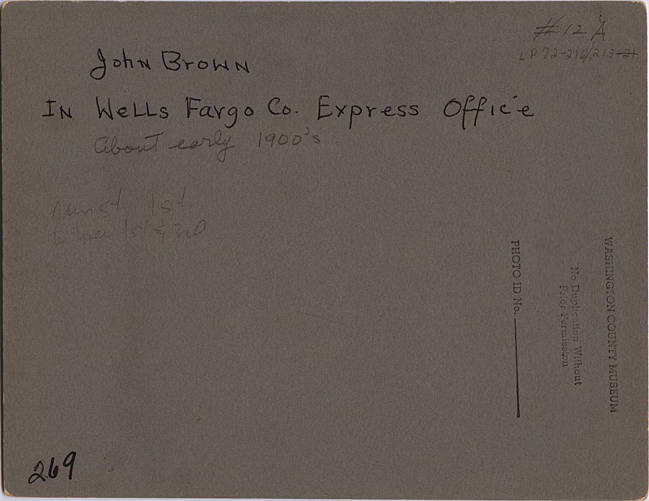 # 12 A
LP 72-216/213-21
John Brown
In Wells Fargo Co. Express Office
About early 1900's
1st
1st & 2nd
WASHINGTON COUNTY MUSEUM
No Duplication Without
Prior Permission
PHOTO ID No.
269